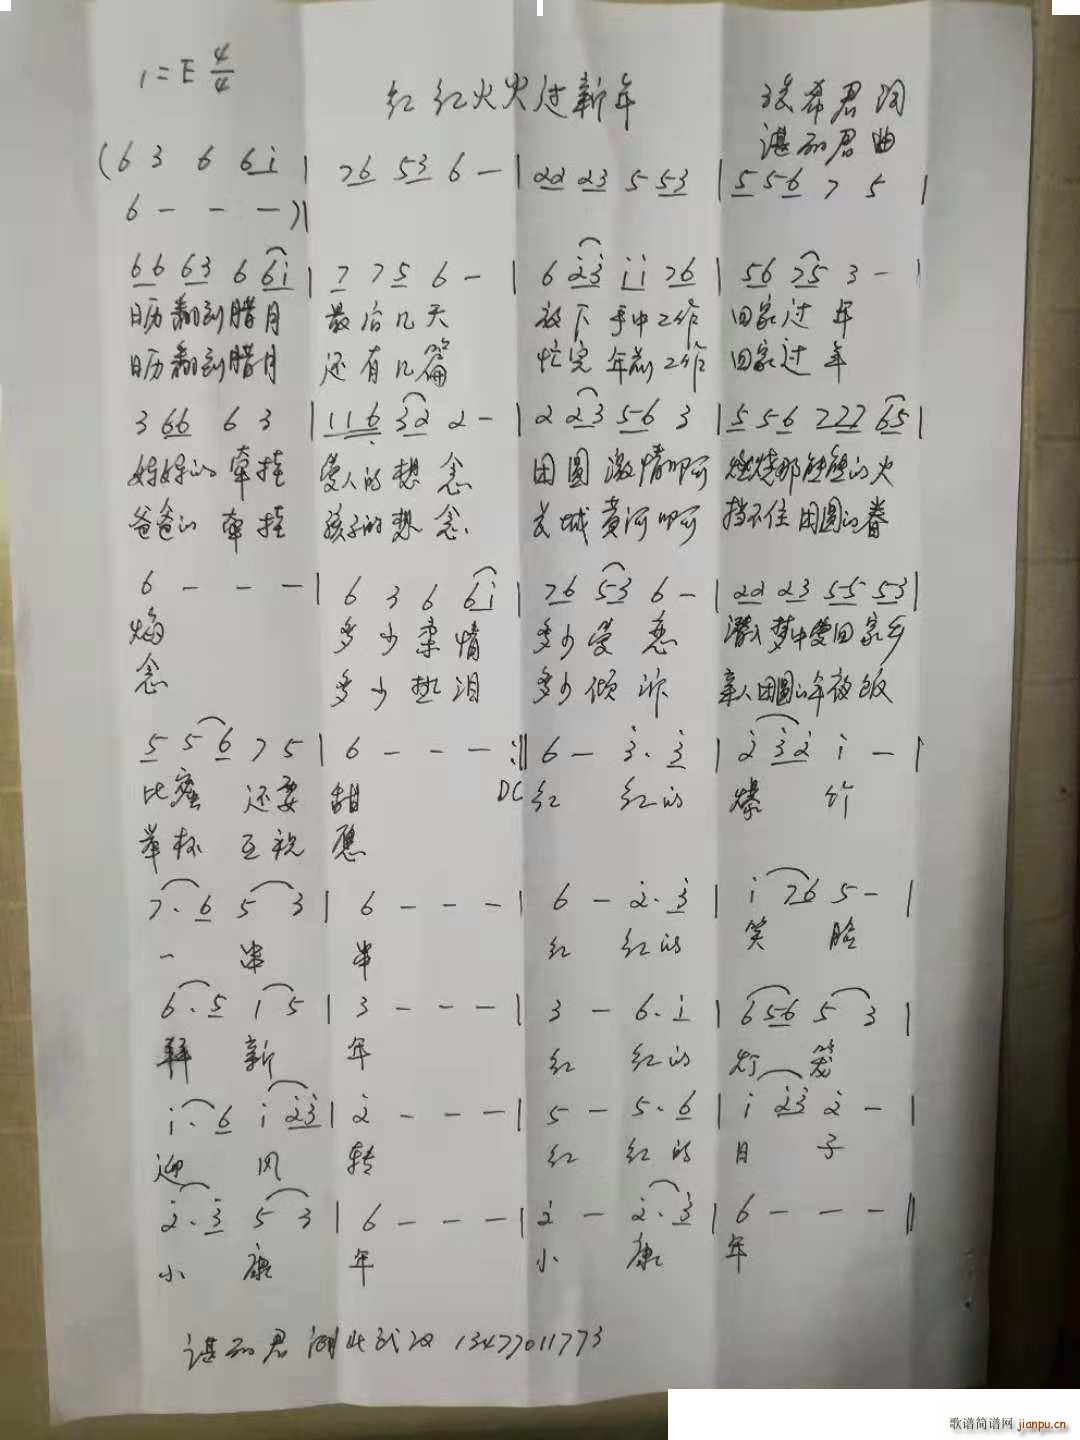 1=E 4/4
红红火火过新年
希君词
谌丽君曲
(6 3 6 6i | 76 53 6 - | 22 23 5 53 | 5 56 7 5 |
6 - - - )||
66 63 6 6i | 7 75 6 - | 6 23 ii 76 | 56 75 3 - |
日历翻到腊月 最后几天 放下手中工作 回家过年
日历翻到腊月 还有几篇 忙完年前工作 回家过年
3 66 6 3 | 116 32 2 - | 2 23 56 3 | 5 56 777 65 |
妈妈的牵挂 爱人的想念 团圆激情啊 燃烧那熊熊的火
爸爸的牵挂 孩子的想念 长城黄河啊 挡不住团圆的眷
6 - - - | 6 3 6 6i | 76 53 6 - | 22 23 55 53 |
焰 多少柔情 多少爱恋 潜入梦中爱回家乡
念 多少热泪 多少倾诉 亲人团圆的年夜饭
5 56 75 | 6 - - - :|| 6 - 3. 3 | 2 32 i - |
比蜜还要甜 DC 红 红的 爆竹
举杯互祝愿
7. 6 5 3 | 6 - - - | 6 - 2. 3 | i 76 5 - |
一串串 红 红的 笑脸
6. 5 1 5 | 3 - - - | 3 - 6. i | 6 56 5 3 |
拜新年 红 红的 灯笼
i. 6 i 23 | 2 - - - | 5 - 5. 6 | i 23 2 - |
迎风转 红 红的 日子
2. 3 5 3 | 6 - - - | 2 - 2. 3 | 6 - - - ||
小康年 小康年
谌丽君 湖北武汉 13477011773
歌谱简谱网 jianpu.cn